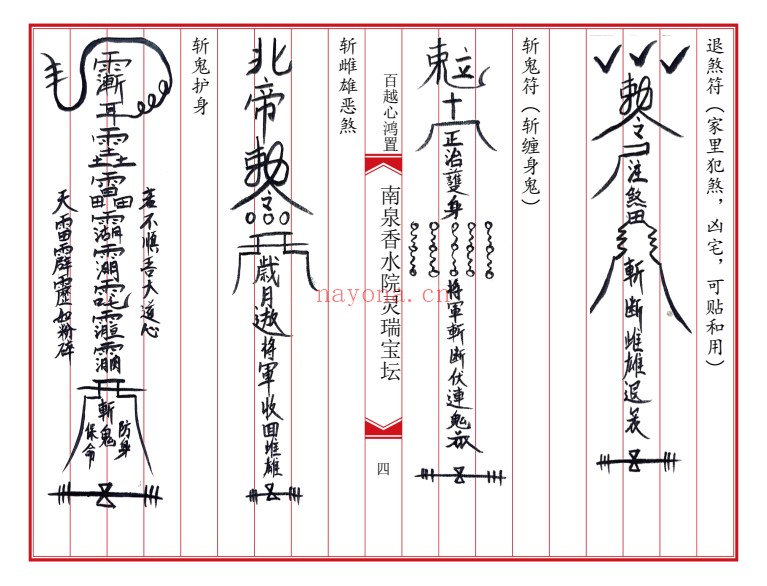 退煞符（家里犯煞，凶宅，可贴和用）
勅令
注煞
斬断雌雄退
斩鬼符（斩缠身鬼）
正治護身
将軍斬断伏連鬼
百越心鸿置
南泉香水院灵瑞宝坛
四
斩雌雄恶煞
北帝勅令
歳月
将軍收回雌雄
斩鬼护身
若不順吾大道心
天雷霹靂如粉碎
斬鬼
防身
保命
nayona.cn